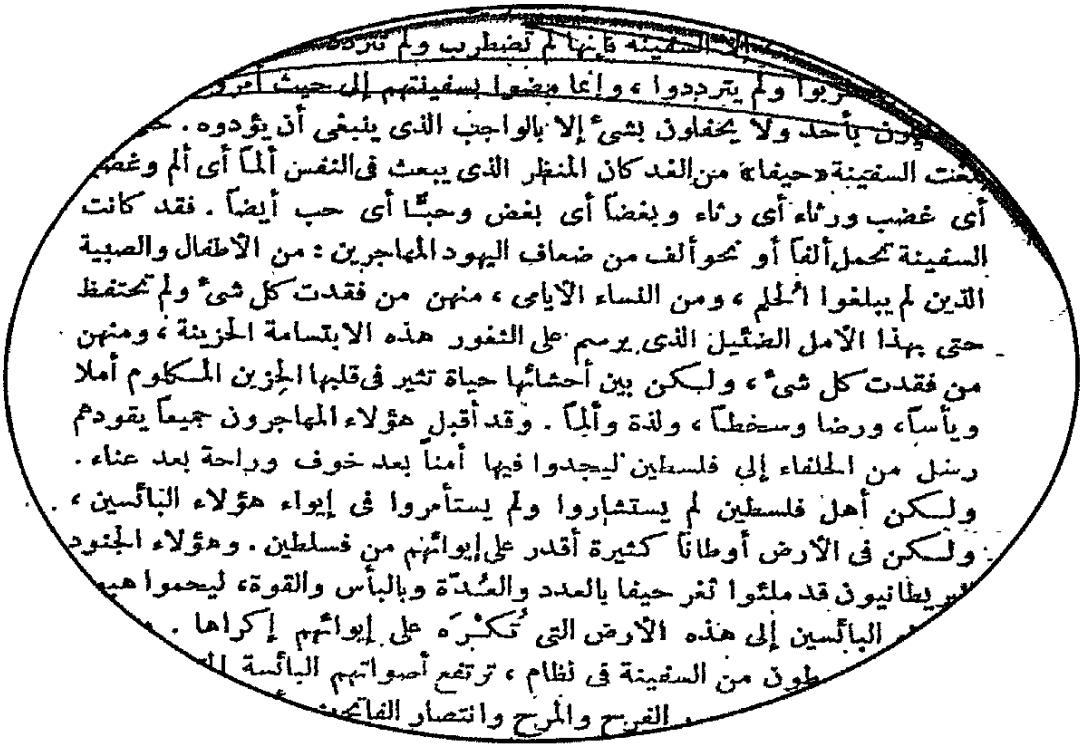 إلا السفينة فإنها لم تضطرب ولم تتردد
ولم يترددوا ، وإنما مضوا بسفينتهم إلى حيث أمروا
بأحد ولا يحفلون بشىء إلا بالواجب الذى ينبغى أن يؤدوه .
بلغت السفينة «حيفا» من الغد كان المنظر الذى يبعث فى النفس ألماً أى ألم وغضباً
أى غضب ورثاء أى رثاء وبغضاً أى بغض وحبًّا أى حب أيضاً . فقد كانت
السفينة تحمل ألفاً أو نحو ألف من ضعاف اليهود المهاجرين : من الأطفال والصبية
الذين لم يبلغوا الحلم ، ومن النساء الأيامى ، منهن من فقدت كل شىء ولم تحتفظ
حتى بهذا الأمل الضئيل الذى يرسم على الثغور هذه الابتسامة الحزينة ، ومنهن
من فقدت كل شىء ، ولكن بين أحشائها حياة تثير فى قلبها الحزين المكلوم أملا
ويأساً ، ورضا وسخطاً ، ولذة وألماً . وقد أقبل هؤلاء المهاجرون جميعاً يقودهم
رسل من الحلفاء إلى فلسطين ليجدوا فيها أمناً بعد خوف وراحة بعد عناء .
ولكن أهل فلسطين لم يستشاروا ولم يستأمروا فى إيواء هؤلاء البائسين ،
ولكن فى الأرض أوطاناً كثيرة أقدر على إيوائهم من فسلطين . وهؤلاء الجنود
البريطانيون قد ملئوا ثغر حيفا بالعدد والعُدّة وبالبأس والقوة ، ليحموا
البائسين إلى هذه الأرض التى تُكْرَه على إيوائهم إكراها .
من السفينة فى نظام ، ترتفع أصواتهم البائسة
الفرح والمرح وانتصار